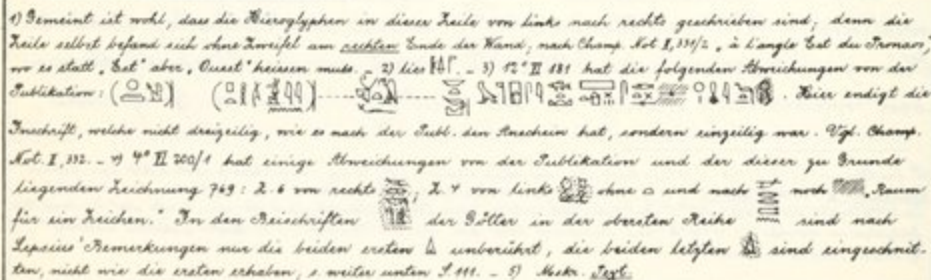 1) Gemeint ist wohl, dass die Hieroglyphen in dieser Zeile von links nach rechts geschrieben sind; denn die
Zeile selbst befand sich ohne Zweifel am rechten Ende der Wand, nach Champ. Not II, 331/2 „à l'angle Est du Pronaos",
wo es statt „Est" aber „Ouest" heissen muss. – 2) lies – 3) 12° VI 181 hat die folgenden Abweichungen von der
Publikation: Hier endigt die
Inschrift, welche nicht dreizeilig, wie es nach der Publ. den Anschein hat, sondern einzeilig war. Vgl. Champ.
Not. I, 332. – 4) 4° VI 200/1 hat einige Abweichungen von der Publikation und der dieser zu Grunde
liegenden Zeichnung 769: Z. 6 von rechts ; Z. 4 von links ohne und nach noch „Raum
für ein Zeichen." In den Beischriften der Götter in der obersten Reihe sind nach
Lepsius' Bemerkungen nur die beiden ersten unberührt, die beiden letzten sind eingeschnit-
ten, nicht wie die ersten erhaben, s. weiter unten S. 111. – 5) Mskr. Text.